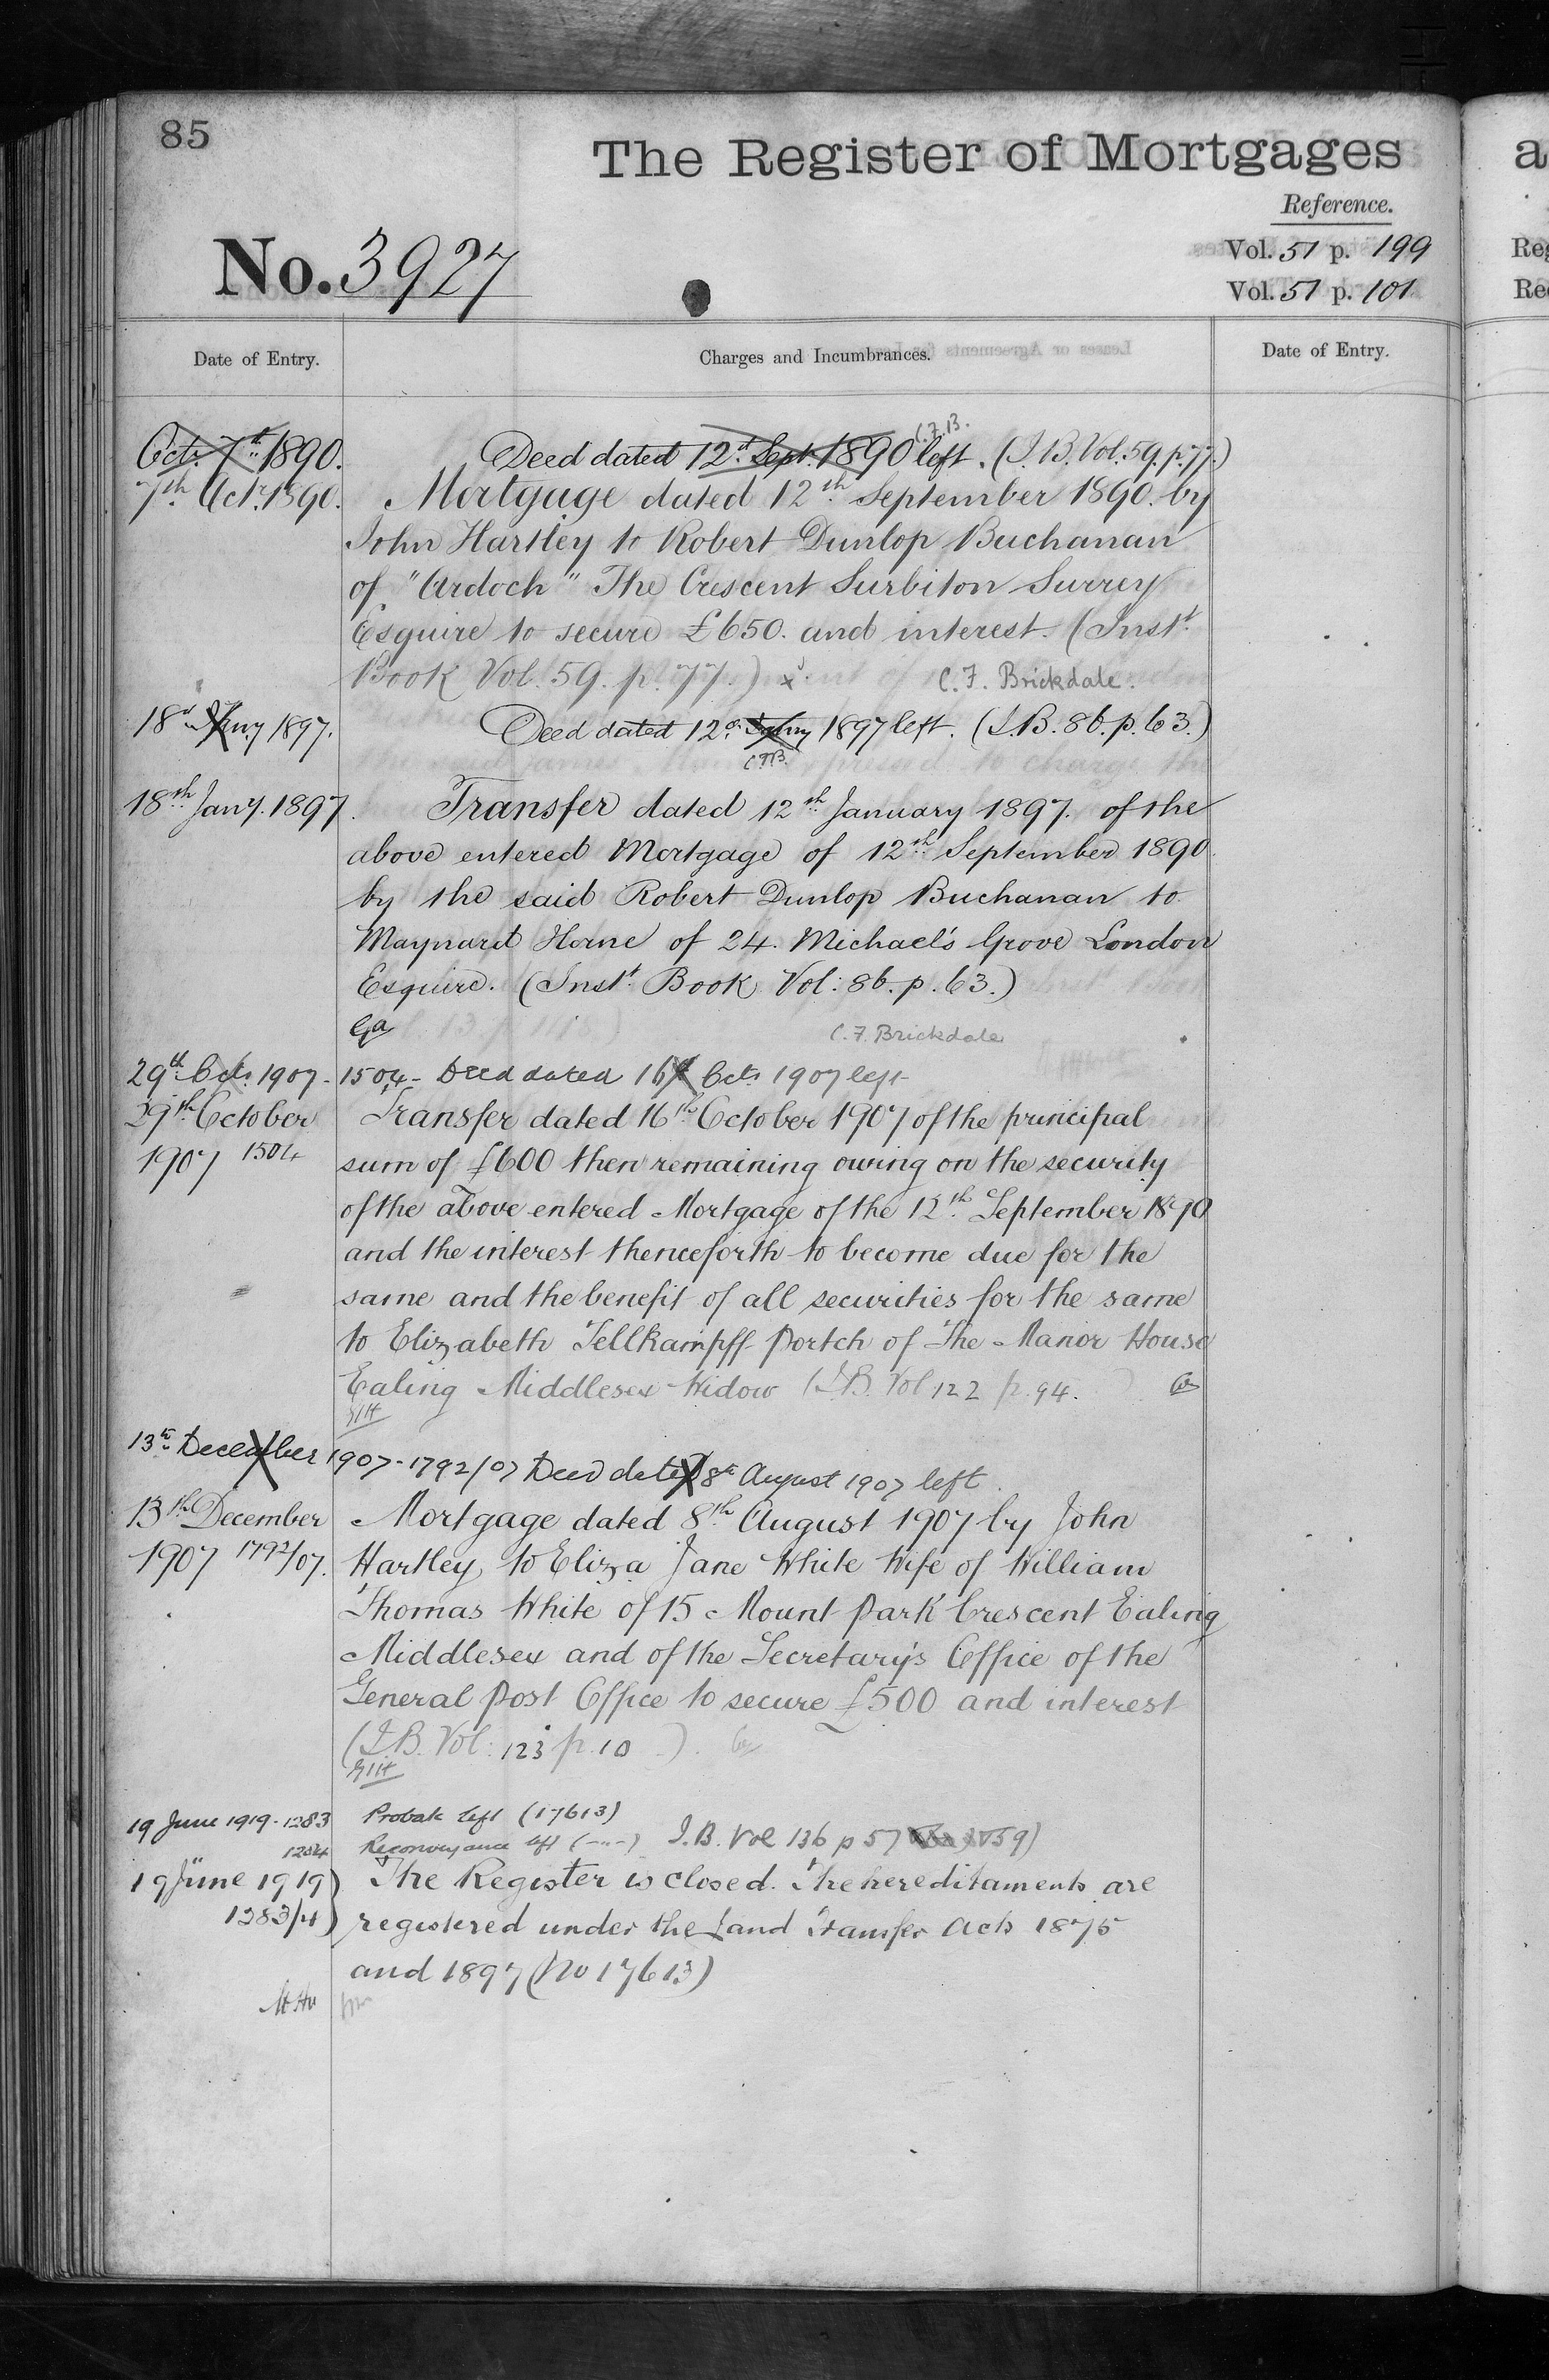 85
The Register of Mortgages
Reference.
No. 3927
Vol. 51 p. 199
Vol. 51 p. 101
Date of Entry.
Charges and Incumbrances.
Date of Entry.
C.F.B.
Octr. 7th 1890. Deed dated 12th Sept. 1890 left. (I.B. Vol. 59. p. 77.)
7th Octr. 1890. Mortgage dated 12th September 1890. by
John Hartley to Robert Dunlop Buchanan
of "Ardoch" The Crescent Surbiton Surrey
Esquire to secure £650. and interest. (Instt.
Book Vol. 59. p. 77.) x C. F. Brickdale.
18th Jany 1897. Deed dated 12th Jany 1897 left. (I.B. 86. p. 63.)
C.F.B.
18th Jany. 1897. Transfer dated 12th January 1897. of the
above entered Mortgage of 12th September 1890
by the said Robert Dunlop Buchanan to
Maynard Horne of 24. Michael's Grove London
Esquire. (Instt. Book Vol: 86. p. 63.)
C. F. Brickdale
29th Octr. 1907 - 1504 - Deed dated 16th Octr. 1907 left
29th October Transfer dated 16th October 1907 of the principal
1907 1504 sum of £600 then remaining owing on the security
of the above entered Mortgage of the 12th September 1890
and the interest thenceforth to become due for the
same and the benefit of all securities for the same
to Elizabeth Tellkampff Portch of The Manor House
Ealing Middlesex Widow (I.B. Vol 122 p. 94. )
13th December 1907 - 1792/07 Deed dated 8th August 1907 left.
13th December Mortgage dated 8th August 1907 by John
1907 1792/07. Hartley to Eliza Jane White Wife of William
Thomas White of 15 Mount Park Crescent Ealing
Middlesex and of the Secretary's Office of the
General Post Office to secure £500 and interest
(I.B. Vol: 123 p. 10 ).
19 June 1919 - 1283 Probate left (17613)
1284 Reconveyance left (-----) I.B. Vol 136 p 57 59)
19 June 1919) The Register is closed. The hereditaments are
1283/4) registered under the Land Transfer Acts 1875
and 1897 (No 17613)
a
Reg
Rec